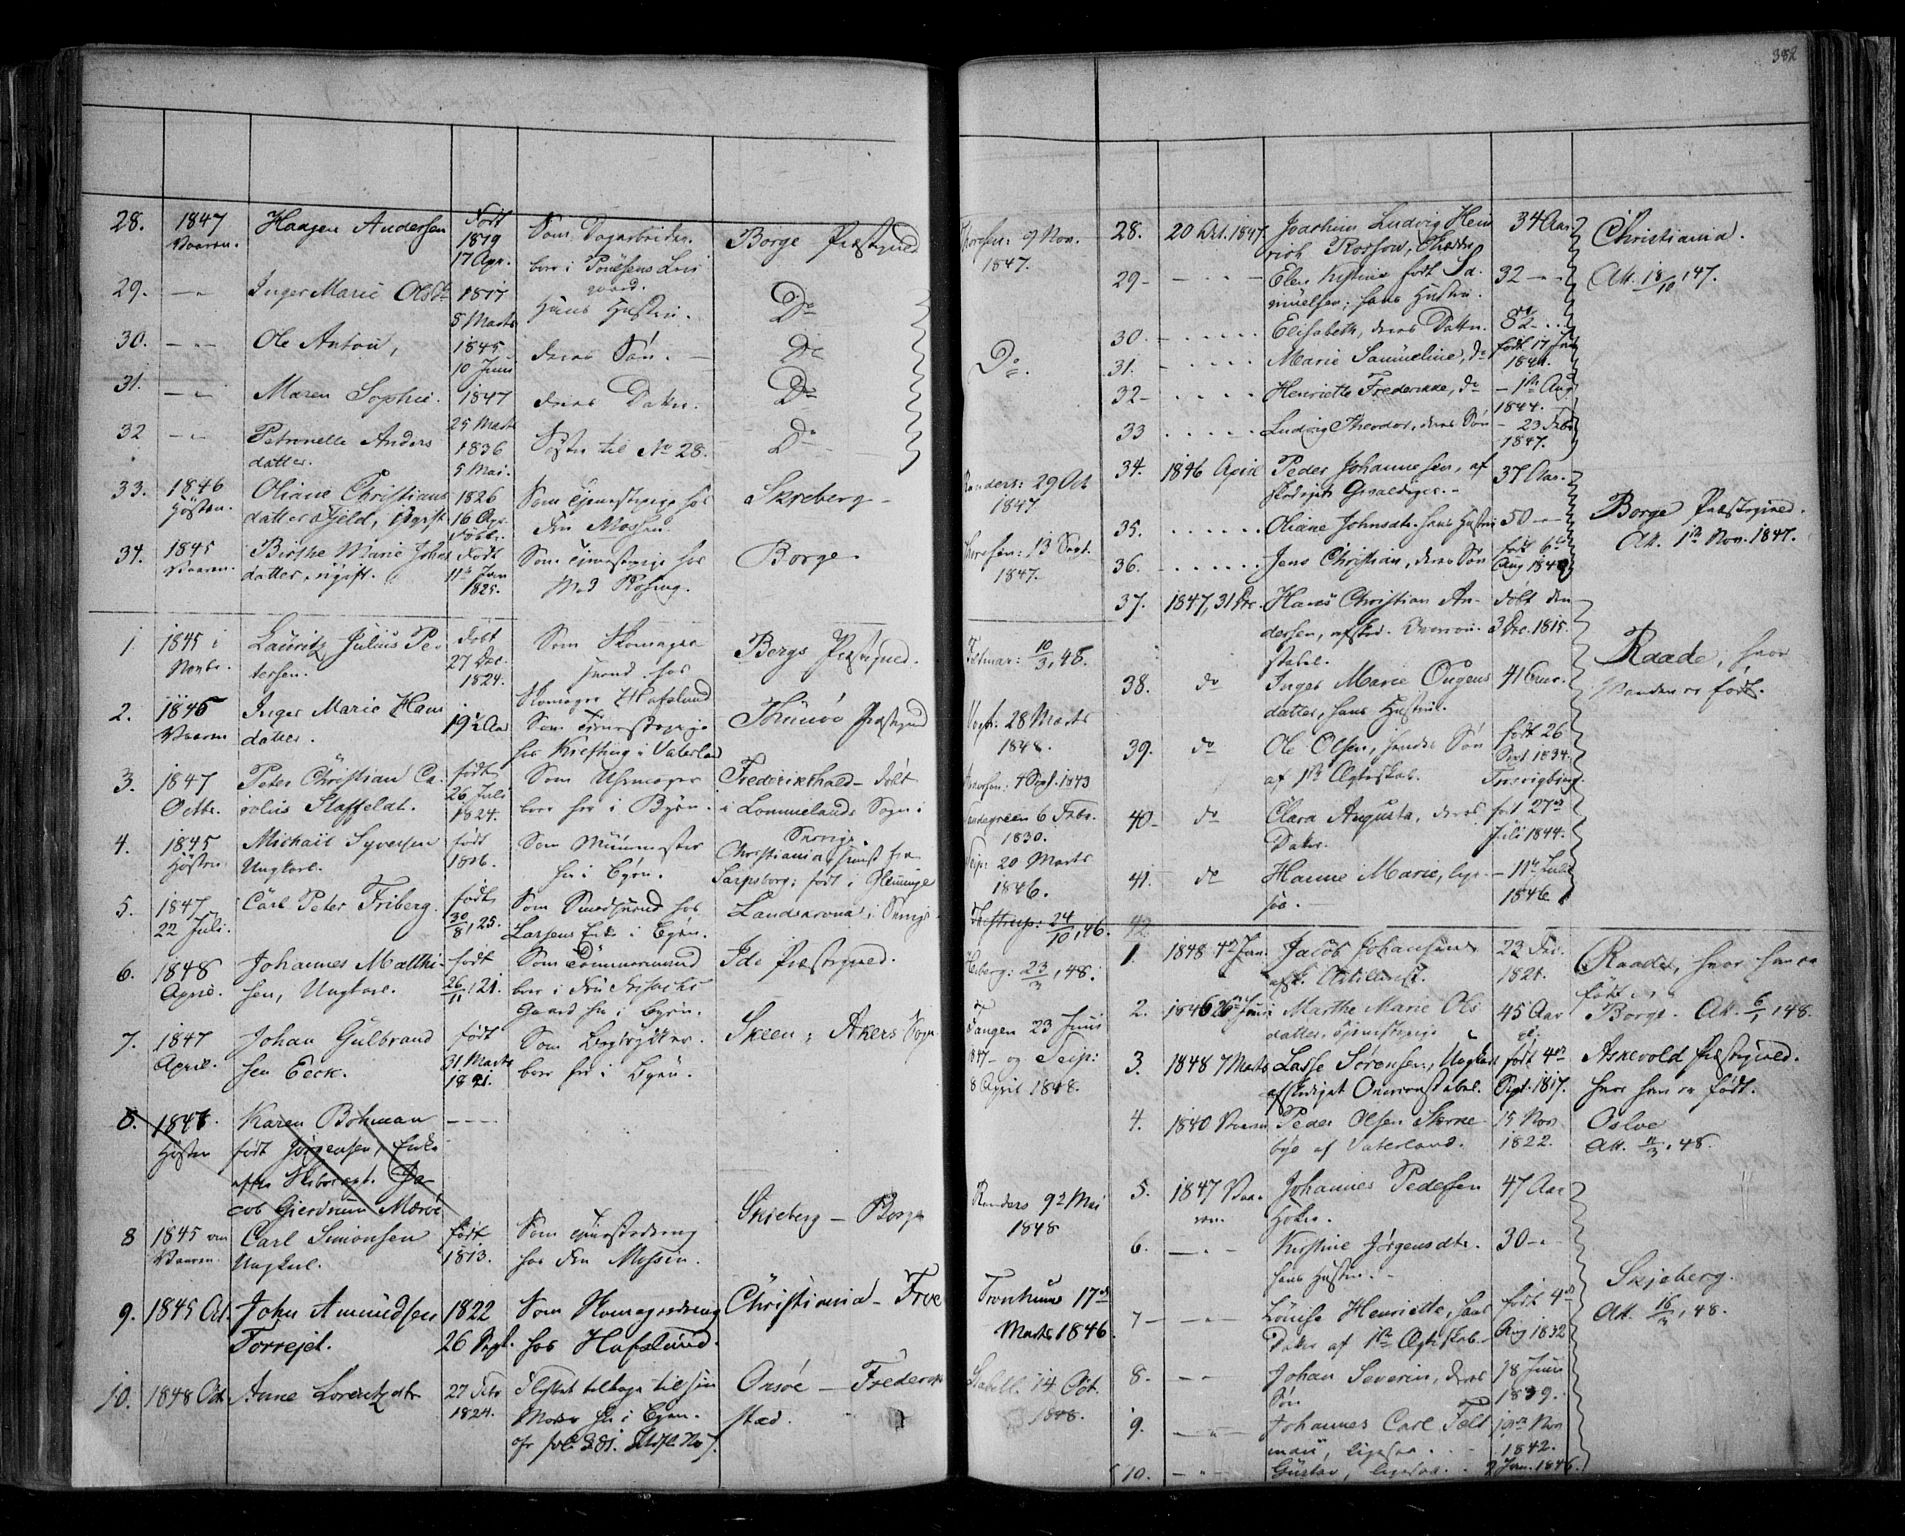 382
28. 1847 Haagen Andersen født Som Dagarbeider, Borge Præstegjeld
Vaaren. 1819 boer i
17 Apr.
29. Inger Marie Olsdr 1817 Hans Hustru. Do
5 Marts
30. Ole Anton, 1845 deres Søn. Do
10 Juni
31. Maren Sophie. 1847 deres Datter. Do
25 Marts
32 Petronelle Anders 1836 Søster til No 28. Do
datter. 5 Mai.
33. 1846 Oliane Christians 1826 Som Tjenestepige hos Skjeberg
Høsten. datter Fjeld, Ugift 16 Apr. Fru Mossin.
34. 1845 Birthe Marie Johns født Som Tjenestepige hos Borge.
Vaaren. datter, ugift. 11te Jan Mad Rosing.
1825.
1. 1845 i Lauritz Julius Pe- født Som Skomager Bergs Præstegjeld.
Novbr. tersen. 27 Dec. svend hos
1824. Skomager Hafslund
2. 1846 Inger Marie Hans 19½ Aar Som Tjenestepige Thunø Præstegjeld
Vaaren datter. hos Krefting i Vaterland
3. 1847 Peter Christian Ca- født Som Uhrmager Frederikshald - født
Octbr. rolius Staffeldt. 26 Juli boer her i Byen. i Lommelands Sogn i
1824. Sverige
4. 1845 Michael Syversen født Som Muurmester Christiania, sidst fra
Høsten. Ungkarl. 1816. her i Byen. Sarpsborg; født i Glemminge
5. 1847 Carl Peter Friberg. født Som Smedsvend hos Landskrona i Sverige
22 Juli. 30/8, 25. Larsens Enke i Byen.
6. 1848 Johannes Matthi- født Som Tømmermand Idi Præstegjeld.
April. sen, Ungkarl. 26/11, 21. boer i Fru
Gaard her i Byen.
7. 1847 Johan Gulbrand født Som Bogtrykker. Skeen; Akers Sogn
April. sen Eeck. 31 Marts boer her i Byen.
1821.
8. 1847. Karen Bohman
Høsten født Jørgensen, Enke
efter Skibscapt. Ja-
cob Gierdrum Mærøe
8 1845 om Carl Simonsen født Som Tjenestedreng Skjeberg - Borge
Vaaren. Ungkarl. 1813. hos Fru Mossin.
9. 1845 Oct. John Amundsen 1822 Som Skomagerdreng Christiania - Troe
Torrejet. 26 Sept. hos Hafslund.
10. 1848 Oct. Anne Lorentzdtr 27 Febr Flyttet tilbage til sin Onsøe - Frederik
1824. Moder her i Byen. stad.
Thoresen: 9 Nov. 28. 20 Oct. 1847 Joachim Ludvig Hen 34 Aar Christiania.
1847. rich Rossow,
29 - Elen Kistine født Sa- 32 Att. 18/10, 47.
muelsen, hans Hustru.
30. Elisabeth, deres Datter.
Do. 31. Marie Samueline, do født 17 Juli
1841.
32 - Henriette Frederikke, do - 1ste Aug
1844.
33 Ludvig Theodor, deres Søn - 23 Febr
1847.
Randers: 29 Oct 34. 1846 April Peder Johannesen, af 37 Aar.
1847 skediget Gevaldiger. Borge Præstegjeld.
35. Oliane Johnsdtr. hans Hustru 50 Att. 1ste Nov. 1847.
Thoresen: 13 Sept. 36. Jens Christian, deres Søn født 6te
1847. Aug 1840
37. 1847, 31 Dec. Hans Christian An- født den
dersen, afsked. Overcon- 3 Dec. 1815.
stabel. Raade, hvor
10/3, 48. 38. do Inger Marie Ougens 41 Aar. Manden er født.
datter, hans Hustru.
28 Marts 39. do Ole Olsen, hendes Søn født 26
1848. af 1ste Ægteskab. Sept 1834.
4 Sept. 1843
6 Febr. 40. do Clara Augusta, deres født 27de
1830. Datter. Juli 1844.
20 Marts 41. do Hanne Marie, lige- - 11te Juli
1846. saa. 1846
24/10, 46. 42.
Heberg: 23/3, 48. 1. 1848 4de Jan. Jacob Johansen 23 Raade, hvor han er
afsk. Artillerist. 1821. født.
Fangen 23 Juni 2. 1846 26de Juni Marthe Marie Ols 45 Aar Borge. Att. 6/1, 48.
datter, Tjenestepige
47 - og Seip: 3. 1848 7 Marts Lasse Sørensen, Ungkarl født 4de Askevold Præstegjeld.
8 April 1848. afskediget Overconstabel. Sept. 1817. hvor han er født.
4. 1840 Vaaren Peder Olsen 15 Nov Osloe
bye af Vaterland. 1822. Att. 11/3, 48.
Randers 92 Mai 5. 1847 Vaa- Johannes Pedersen 47 Aar
1848 ren. Høker.
6. Kirstine Jørgensdtr. 30
hans Hustru. Skjeberg.
Tronhuus 17de 7 - Louise Henriette, hans født 4de Att. 16/3, 48.
Marts 1846. Datter af 1ste Ægteskab. Aug 1832
Stabell. 14 Oct. 8. - Johan Severin, deres 18 Juni
1848. Søn 1839.
9. Johannes Carl Felt 19de Nov
man, ligesaa. 1842.
10. Gustav, ligesaa. 2 Jan. 1846.